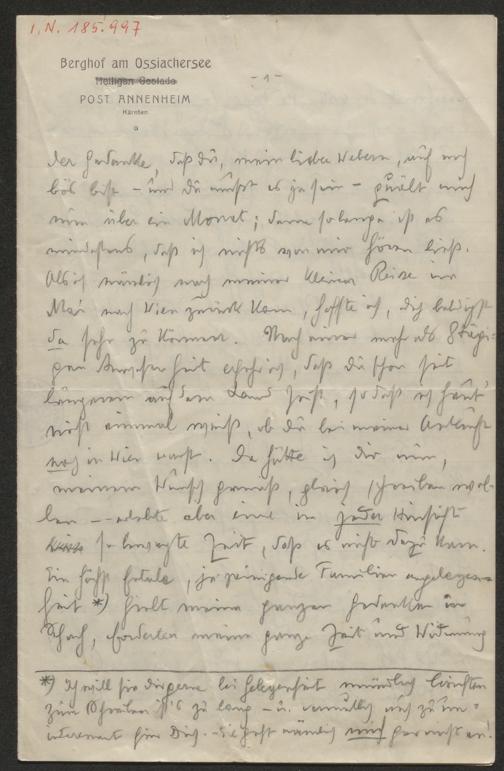 I. N. 185.997
Berghof am Ossiachersee
Heiligen Gestade
POST ANNENHEIM
Kärnten
- 1 -
der Gedanke, daß du, mein lieber Webern, auf mich
bös bist - und du mußt es ja sein - quält mich
nun über ein Monat; denn so lange ist es
mindestens, daß ich nichts von mir hören ließ.
Als ich nämlich nach meiner kleinen Reise im
Mai nach Wien zurück kam, hoffte ich, dich baldigst
da sehn zu können. Nach einer mehr als 8tägi-
gen Anwesenheit erfuhr ich, daß du schon seit
längerem auf dem Land seist, so daß ich heut'
nicht einmal weiß, ob du bei meiner Ankunft
noch in Wien warst. Da hätte ich dir nun,
meinem Wunsch gemäß, gleich schreiben wol-
len - erlebte aber eine in jeder Hinsicht
so bewegte Zeit, daß es nicht dazu kam.
Ein höchst fatale, ja peinigende Familien angelegen-
heit *) hielt meine ganzen Gedanken in
Schach, forderten meine ganze Zeit und Widmung
*) Ich will sie dir gerne bei Gelegenheit mündlich berichten
zum Schreiben ist's zu lang - u. vermutlich auch zu un-
interessant für Dich. Sie geht nämlich mich gar nichts an.